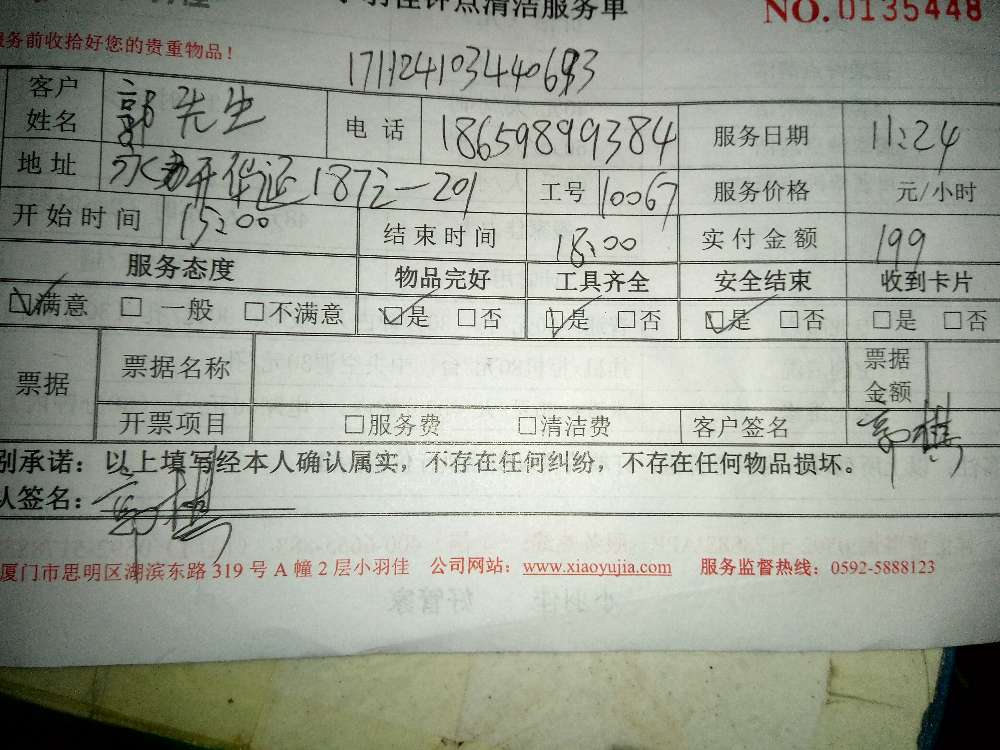 小羽佳钟点清洁服务单 NO.0135448
服务前收拾好您的贵重物品！
客户姓名 郭先生 电话 18659899384 服务日期 11:24
地址 187之一201 工号 10067 服务价格 元/小时
开始时间 15:00 结束时间 18:00 实付金额 199
服务态度 物品完好 工具齐全 安全结束 收到卡片
☑满意 □一般 □不满意 ☑是 □否 ☑是 □否 ☑是 □否 □是 □否
票据 票据名称 票据金额
开票项目 □服务费 □清洁费 客户签名
别承诺：以上填写经本人确认属实，不存在任何纠纷，不存在任何物品损坏。
认签名：
厦门市思明区湖滨东路 319 号 A 幢 2 层小羽佳 公司网站：www.xiaoyujia.com 服务监督热线：0592-5888123